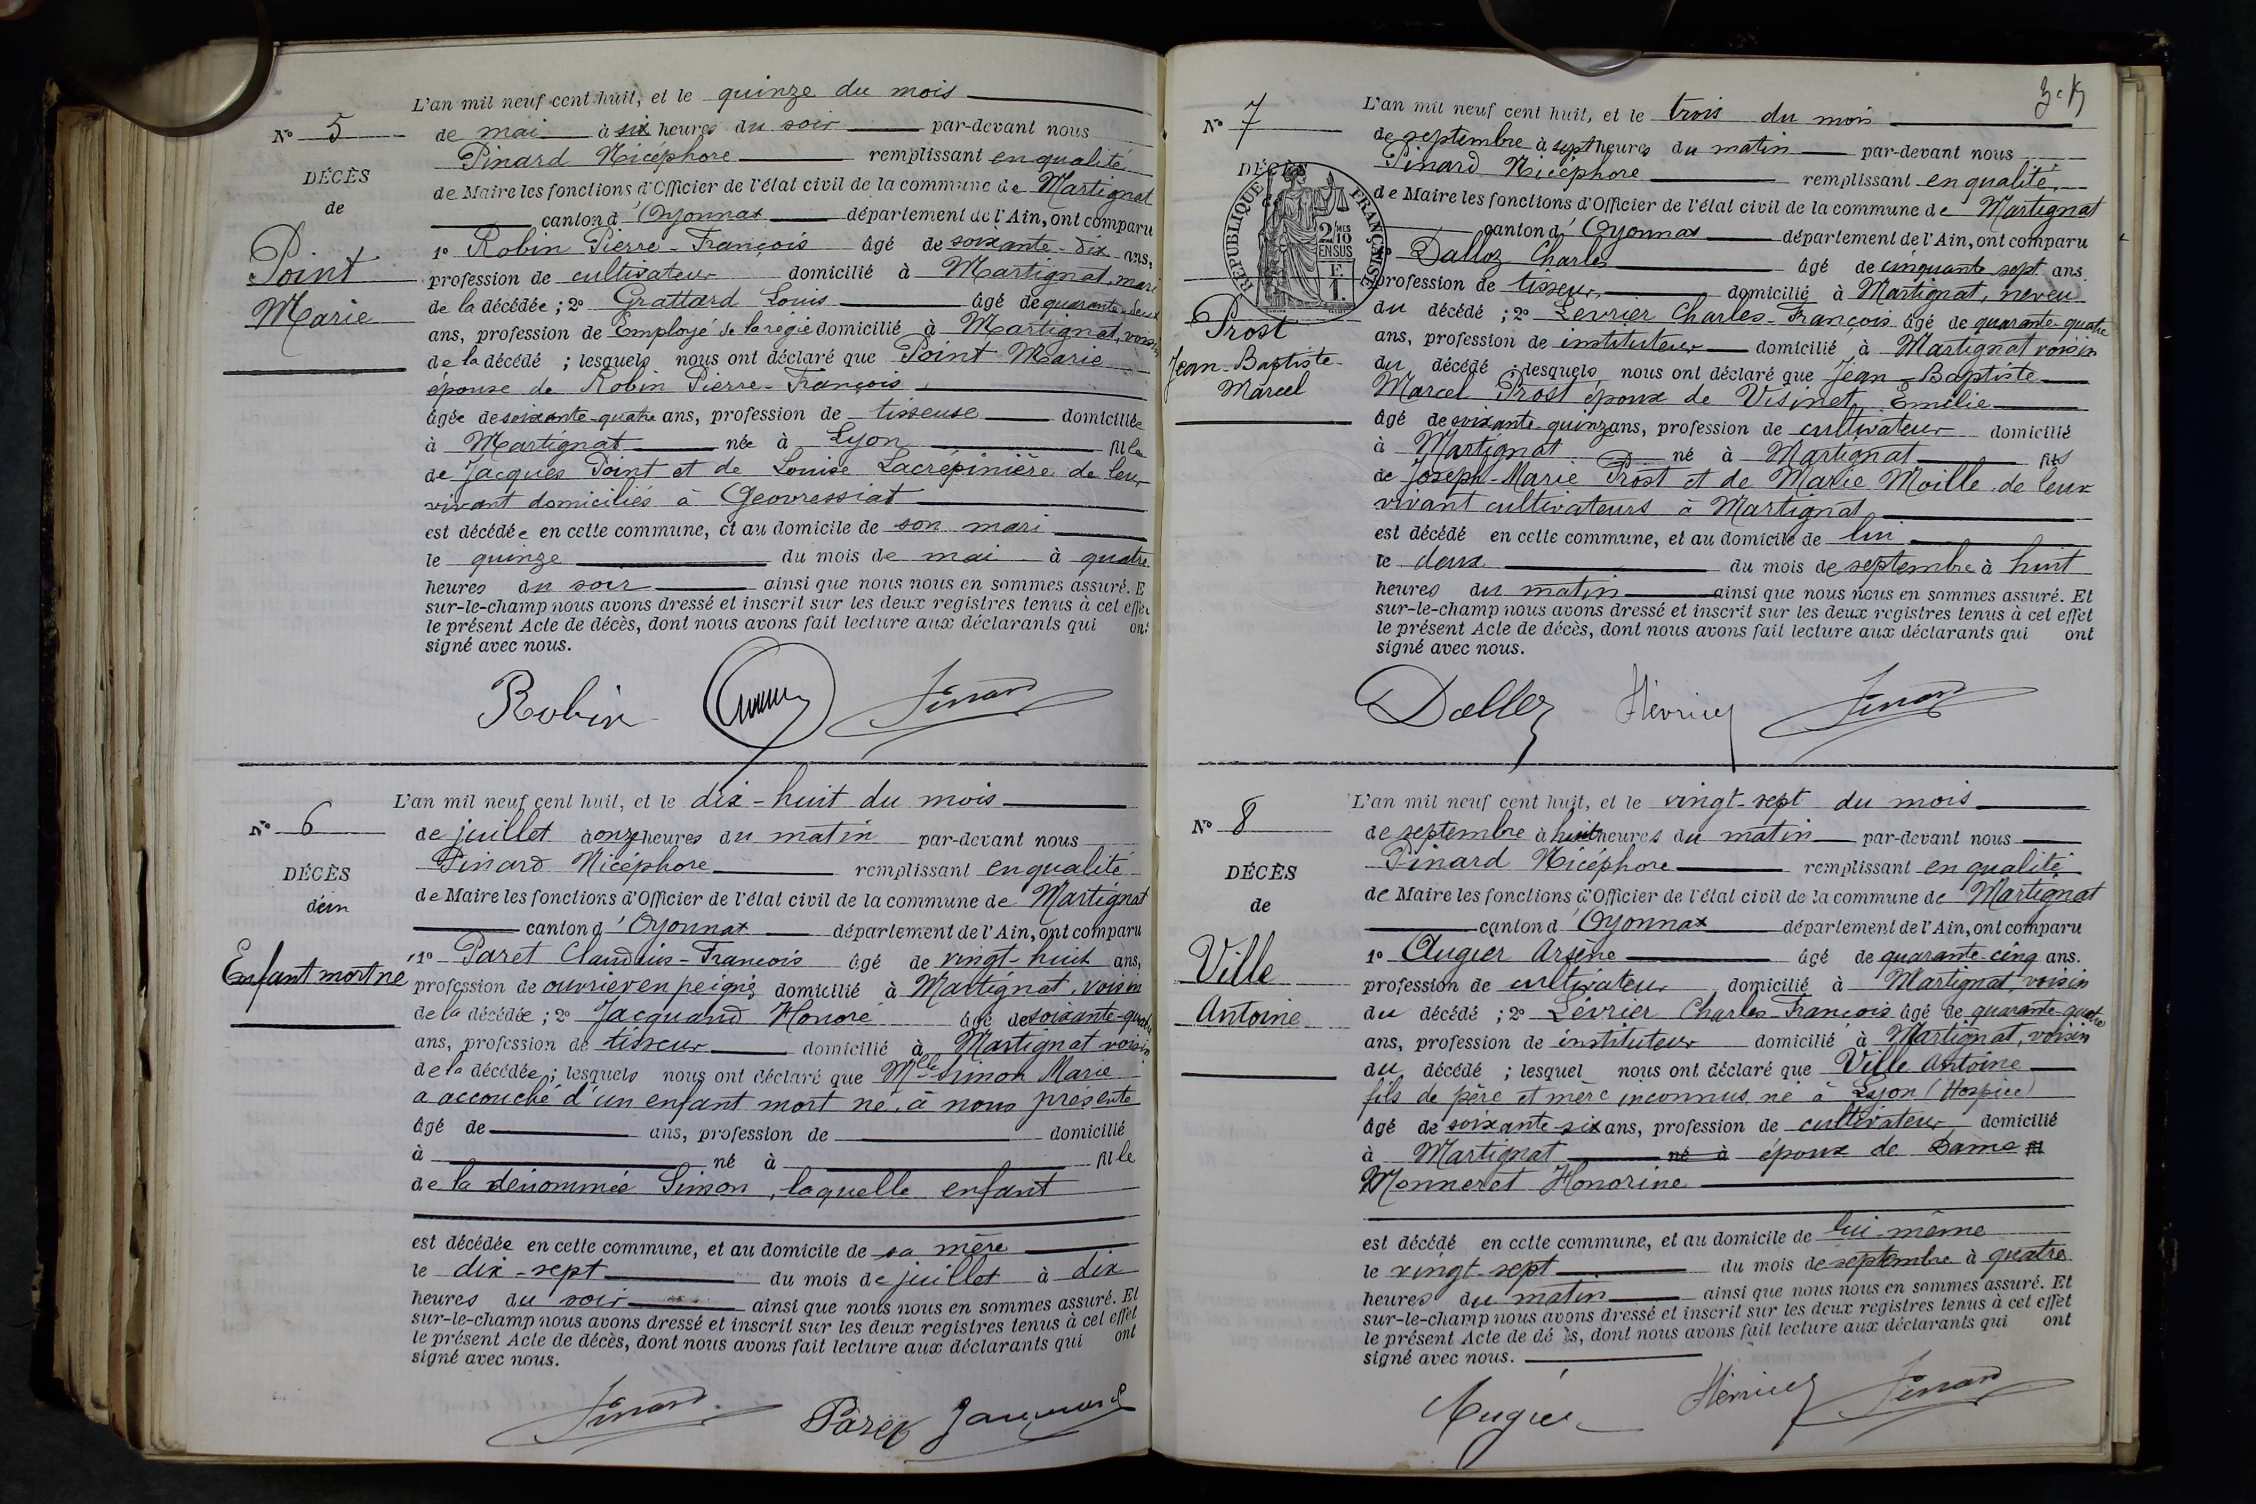 L'an mil neuf cent huit, et le quinze du mois
N° 5
de mai à six heures du soir par-devant nous
Pinard Nicéphore remplissant en qualité
DÉCÈS
de Maire les fonctions d'Officier de l'état civil de la commune de Martignat
de
canton d'Oyonnax département de l'Ain, ont comparu
1° Robin Pierre-François âgé de soixante-dix ans,
Point
profession de cultivateur domicilié à Martignat, mari
Marie
de la décédée ; 2° Grattard Louis âgé de quarante-deux
ans, profession de Employé de la régie domicilié à Martignat, voisin
de la décédé ; lesquels nous ont déclaré que Point Marie
épouse de Robin Pierre-François
âgée de soixante-quatre ans, profession de tisseuse domiciliée
à Martignat née à Lyon fille
de Jacques Point et de Louise Lacrépinière de leur
vivant domiciliés à Geovressiat
est décédée en cette commune, et au domicile de son mari
le quinze du mois de mai à quatre
heures du soir ainsi que nous nous en sommes assuré. E
sur-le-champ nous avons dressé et inscrit sur les deux registres tenus à cet effet
le présent Acte de décès, dont nous avons fait lecture aux déclarants qui ont
signé avec nous.
Robin Pinard
L'an mil neuf cent huit, et le dix-huit du mois
N° 6
de juillet à onze heures du matin par-devant nous
Pinard Nicéphore remplissant en qualité
DÉCÈS
de Maire les fonctions d'Officier de l'état civil de la commune de Martignat
d'un
canton d'Oyonnax département de l'Ain, ont comparu
1° Paret Claudius-François âgé de vingt-huit ans,
Enfant mort né
profession de ouvrier en peignes domicilié à Martignat, voisin
de la décédée ; 2° Jacquand Honoré âgé de soixante-quatre
ans, profession de tisseur domicilié à Martignat voisin
de la décédée ; lesquels nous ont déclaré que Mlle Simon Marie
a accouché d'un enfant mort né, à nous présenté
âgé de ans, profession de domicilié
à né à fille
de la dénommée Simon, laquelle enfant
est décédée en cette commune, et au domicile de sa mère
le dix-sept du mois de juillet à dix
heures du soir ainsi que nous nous en sommes assuré. Et
sur-le-champ nous avons dressé et inscrit sur les deux registres tenus à cet effet
le présent Acte de décès, dont nous avons fait lecture aux déclarants qui ont
signé avec nous.
Pinard Paret Jacquand
L'an mil neuf cent huit, et le trois du mois
N° 7
de septembre à sept heures du matin par-devant nous
Pinard Nicéphore remplissant en qualité
DÉCÈS
de Maire les fonctions d'Officier de l'état civil de la commune de Martignat
RÉPUBLIQUE FRANÇAISE
2/10 MES
EN SUS
canton d'Oyonnax département de l'Ain, ont comparu
Dalloz Charles âgé de cinquante sept ans
profession de tisseur domicilié à Martignat, neveu
Prost
du décédé ; 2° Levrier Charles-François âgé de quarante-quatre
ans, profession de instituteur domicilié à Martignat voisin
Jean-Baptiste-
Marcel
du décédé ; lesquels nous ont déclaré que Jean-Baptiste
Marcel Prost époux de Visinet Emélie
âgé de soixante-quinze ans, profession de cultivateur domicilié
à Martignat né à Martignat fils
de Joseph-Marie Prost et de Marie Moille de leur
vivant cultivateurs à Martignat
est décédé en cette commune, et au domicile de lui
le deux du mois de septembre à huit
heures du matin ainsi que nous nous en sommes assuré. Et
sur-le-champ nous avons dressé et inscrit sur les deux registres tenus à cet effet
le présent Acte de décès, dont nous avons fait lecture aux déclarants qui ont
signé avec nous.
Dalloz Pinard
L'an mil neuf cent huit, et le vingt-sept du mois
N° 8
de septembre à huit heures du matin par-devant nous
Pinard Nicéphore remplissant en qualité
DÉCÈS
de Maire les fonctions d'Officier de l'état civil de la commune de Martignat
de
canton d'Oyonnax département de l'Ain, ont comparu
1° Augier Arsène âgé de quarante-cinq ans.
Ville
profession de cultivateur domicilié à Martignat, voisin
Antoine
du décédé ; 2° Lévrier Charles-François âgé de quarante-quatre
ans, profession de instituteur domicilié à Martignat, voisin
du décédé ; lesquel nous ont déclaré que Ville Antoine
fils de père et mère inconnus né à Lyon (Hospice)
âgé de soixante-six ans, profession de cultivateur domicilié
à Martignat né à époux de Dame fil
Monneret Honorine
est décédé en cette commune, et au domicile de lui même
le vingt-sept du mois de septembre à quatre
heures du matin ainsi que nous nous en sommes assuré. Et
sur-le-champ nous avons dressé et inscrit sur les deux registres tenus à cet effet
le présent Acte de dé ès, dont nous avons fait lecture aux déclarants qui ont
signé avec nous.
Augier Pinard